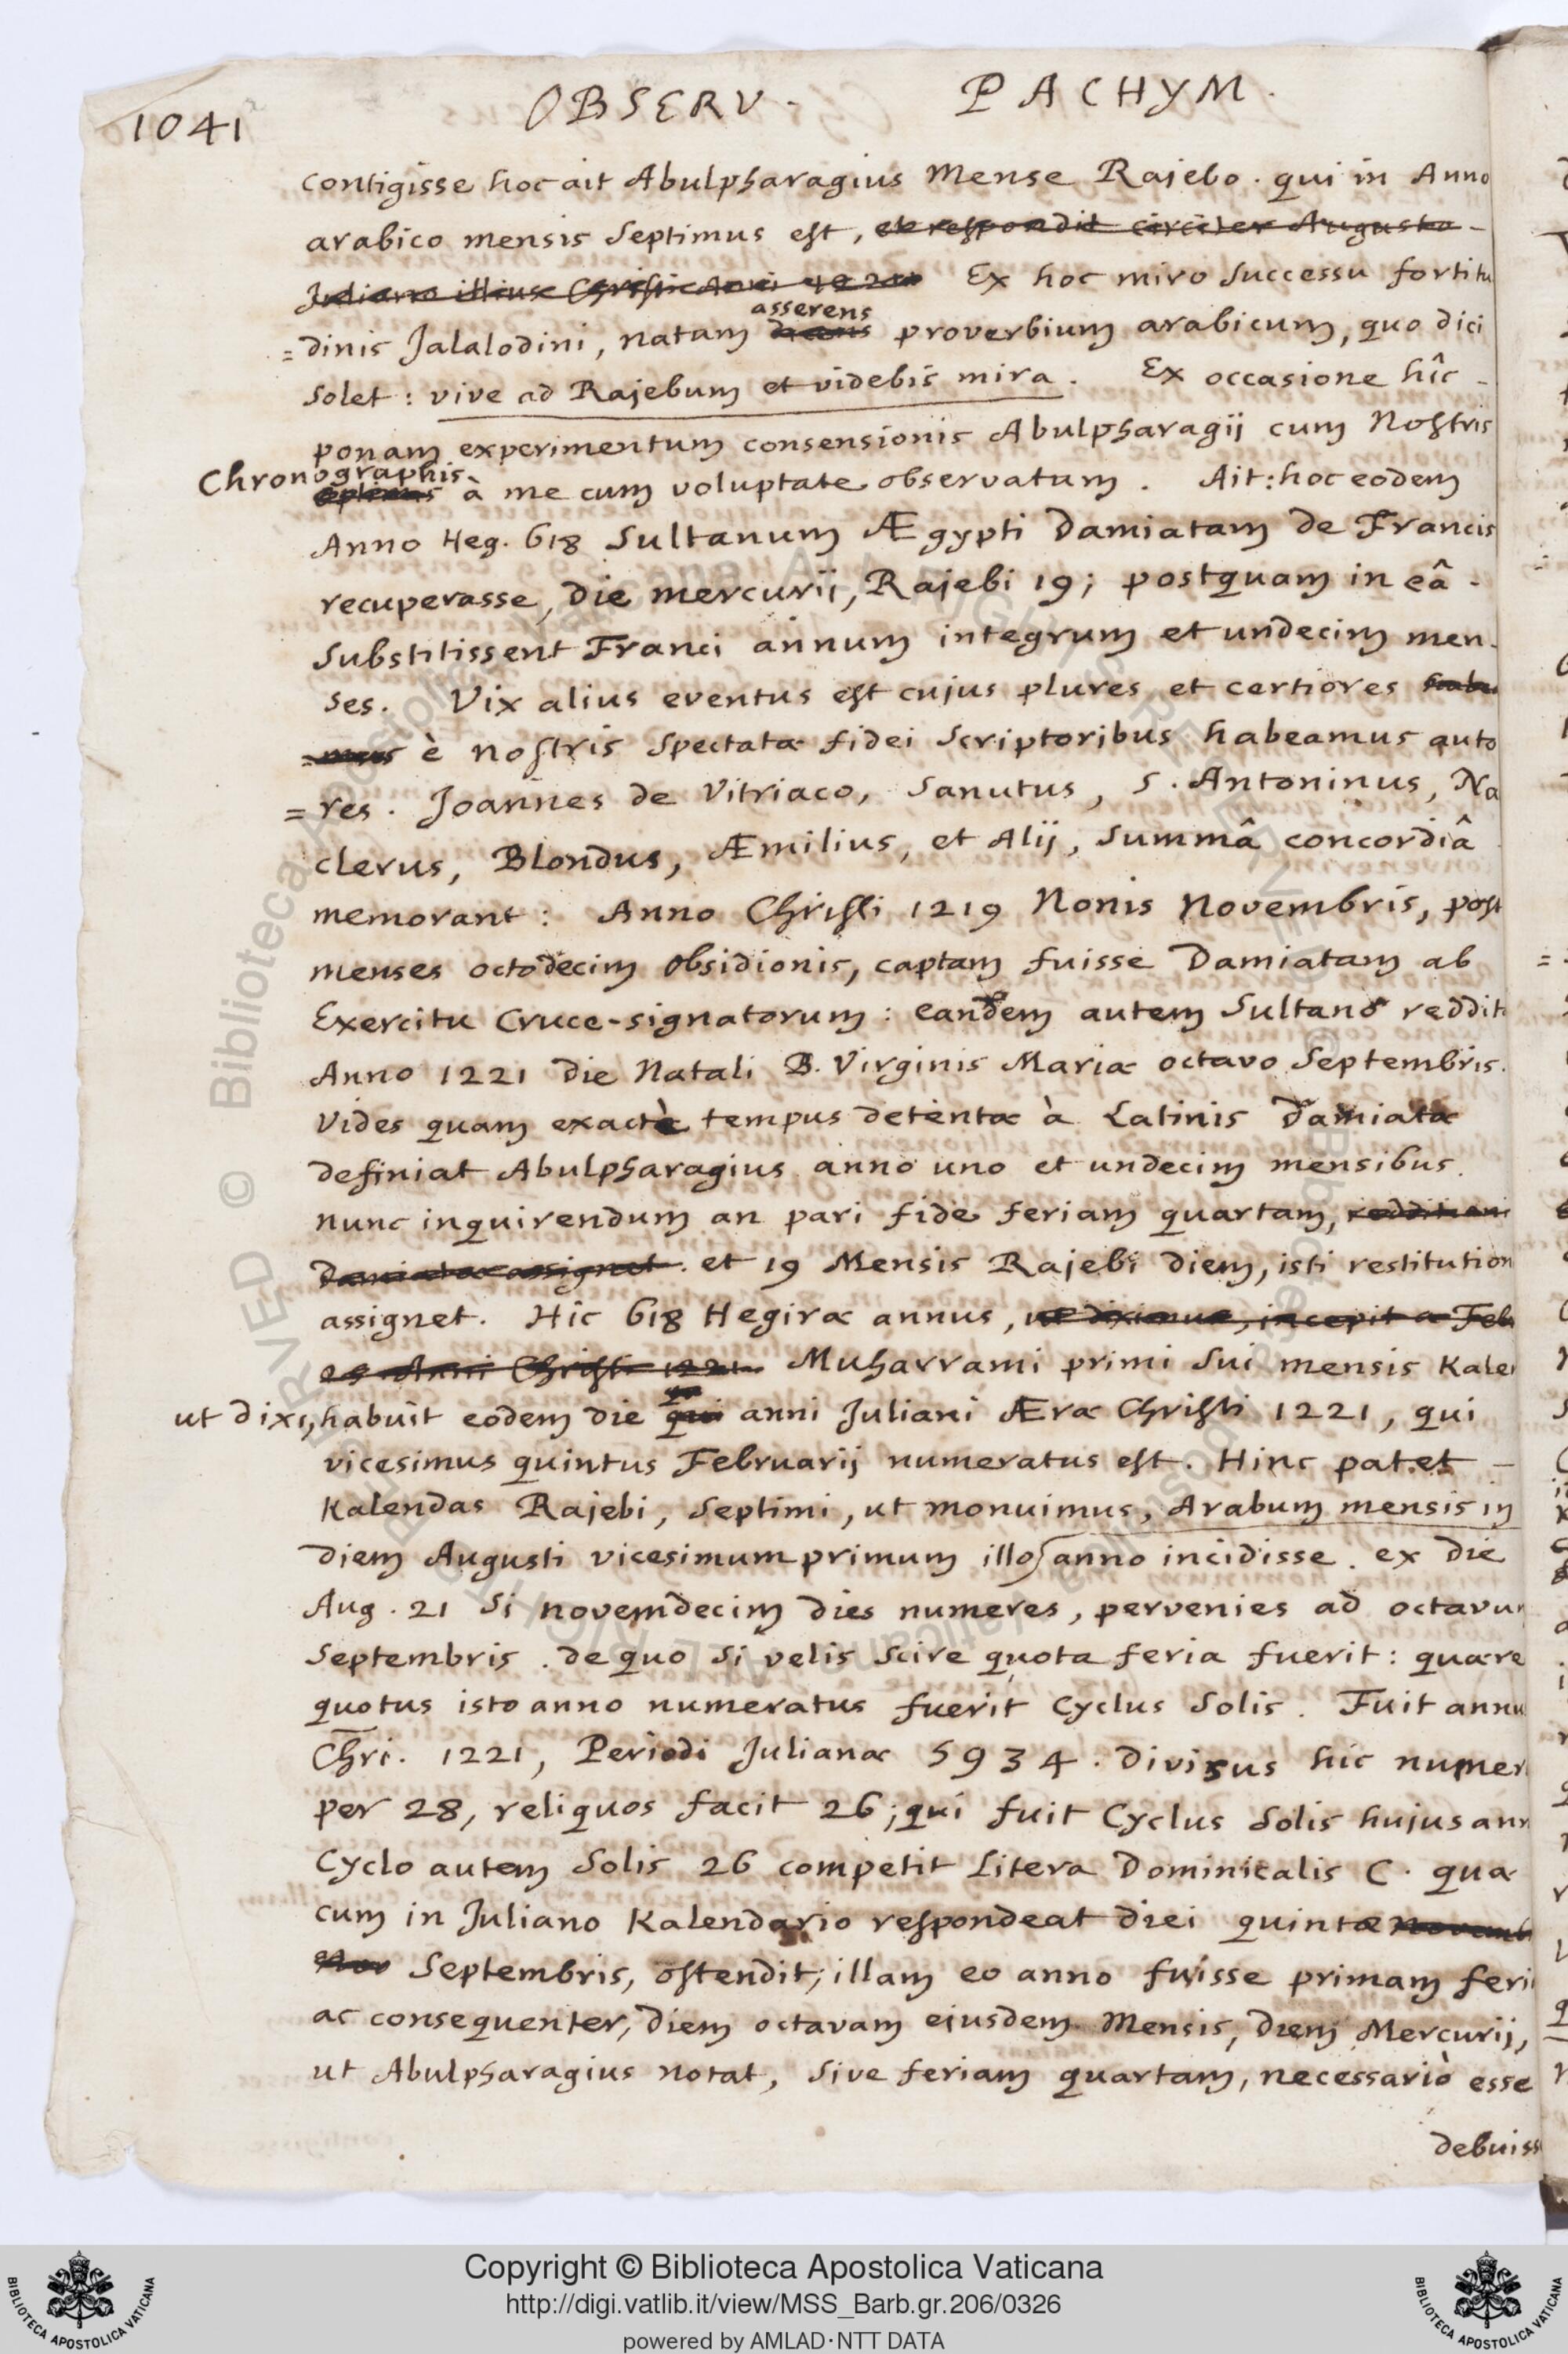 1041
OBSERV. PACHYM.
contigisse hoc ait Abulpharagius Mense Rajebo. qui in Anno
arabico mensis Septimus est, et respondit circiter Augusto
Juliano illius Ex hoc miro successu fortitu
=dinis Jalalodini, natam asserens proverbium arabicum, quo dici
solet: vive ad Rajebum et videbis mira. Ex occasione hîc
ponam experimentum consensionis Abulpharagij cum Nostris
Chronographis à me cum voluptate observatam. Ait: hoc eodem
Anno Heg. 618 Sultanum Ægypti Damiatam de Francis
recuperasse, die mercurij, Rajebi 19; postquam in eâ
substitissent Franci annum integrum et undecim men
ses. Vix alius eventus est cujus plures et certiores
è nostris spectatæ fidei scriptoribus habeamus auto
=res. Joannes de Vitriaco, Sanutus, S. Antoninus, Na
clerus, Blondus, Æmilius, et Alij, summâ concordiâ
memorant: Anno Christi 1219 Nonis Novembris, post
menses octodecim obsidionis, captam fuisse Damiatam ab
Exercitu Cruce-signatorum: eandem autem Sultano reddit
Anno 1221 die Natali B. Virginis Mariæ octavo Septembris.
Vides quam exactè tempus detentæ à Latinis Damiatæ
definiat Abulpharagius anno uno et undecim mensibus.
nunc inquirendum an pari fide feriam quartam, redditioni
Damiatæ assignet. et 19 Mensis Rajebi diem, isti restitution
assignet. Hic 618 Hegiræ annus, ut diximus, incepit a Feb
25 Anni Christi 1221 Muharrami primi sui mensis Kalen
ut dixi, habuit eodem die anni Juliani Æræ Christi 1221, qui
vicesimus quintus Februarij numeratus est. Hinc patet
Kalendas Rajebi, septimi, ut monuimus, Arabum mensis in
diem Augusti vicesimum primum illo anno incidisse. ex die
Aug. 21 si novemdecim dies numeres, pervenies ad octavum
Septembris. de quo si velis scire quota feria fuerit: quære
quotus isto anno numeratus fuerit Cyclus Solis. Fuit annu
Chri. 1221, Periodi Julianæ 5934. Divisus hic numer
per 28, reliquos facit 26; qui fuit Cyclus Solis hujus ann
Cyclo autem Solis 26 competit Litera Dominicalis C. quæ
cum in Juliano Kalendario respondeat diei quintæ Novemb
Septembris, ostendit, illam eo anno fuisse primam feri
ac consequenter, diem octavam ejusdem Mensis, diem Mercurij,
ut Abulpharagius notat, sive feriam quartam, necessariò esse
debuiss
Copyright © Biblioteca Apostolica Vaticana
http://digi.vatlib.it/view/MSS_Barb.gr.206/0326
powered by AMLAD·NTT DATA
BIBLIOTECA APOSTOLICA VATICANA
BIBLIOTECA APOSTOLICA VATICANA